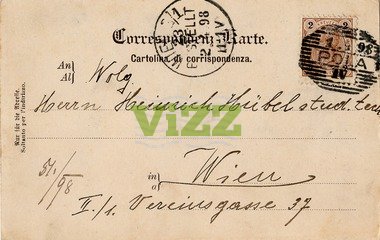 Correspondenz-Karte.
Cartolina di corrispondenza.
2 2
WIEN 1
BESTELLT
98
POLA
98
An
Al
Wolg.
Herrn Heinrich Hübel stud. tech.
ViZZ
Nur für die Adresse.
Soltanto per l'indirizzo.
in
a
Wien
51/98
II./1. Vereinsgasse 37